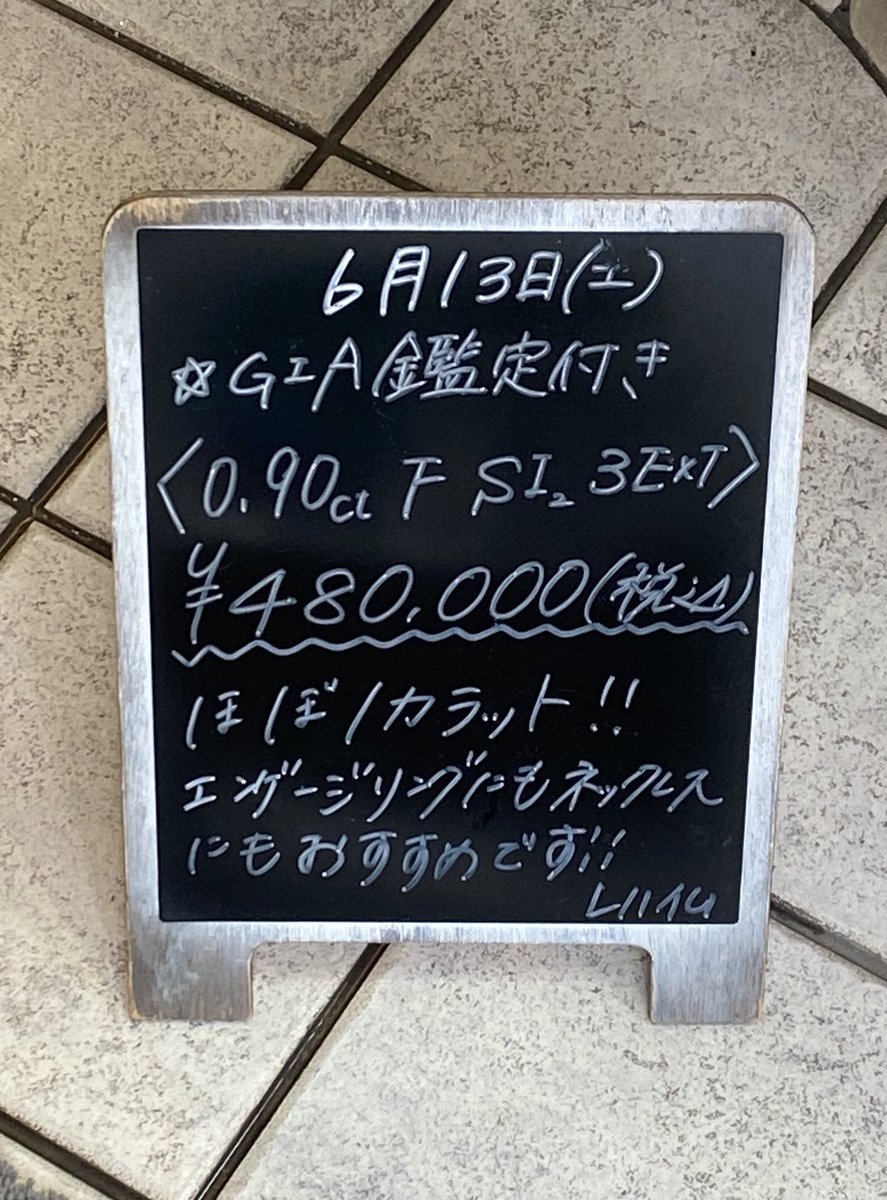 6月13日(土)
☆GIA鑑定付き
〈0.90ct F SI₂ 3EXT〉
¥480,000(税込)
ほぼ1カラット!!
エンゲージリングにもネックレス
にもおすすめです!!
レハイム